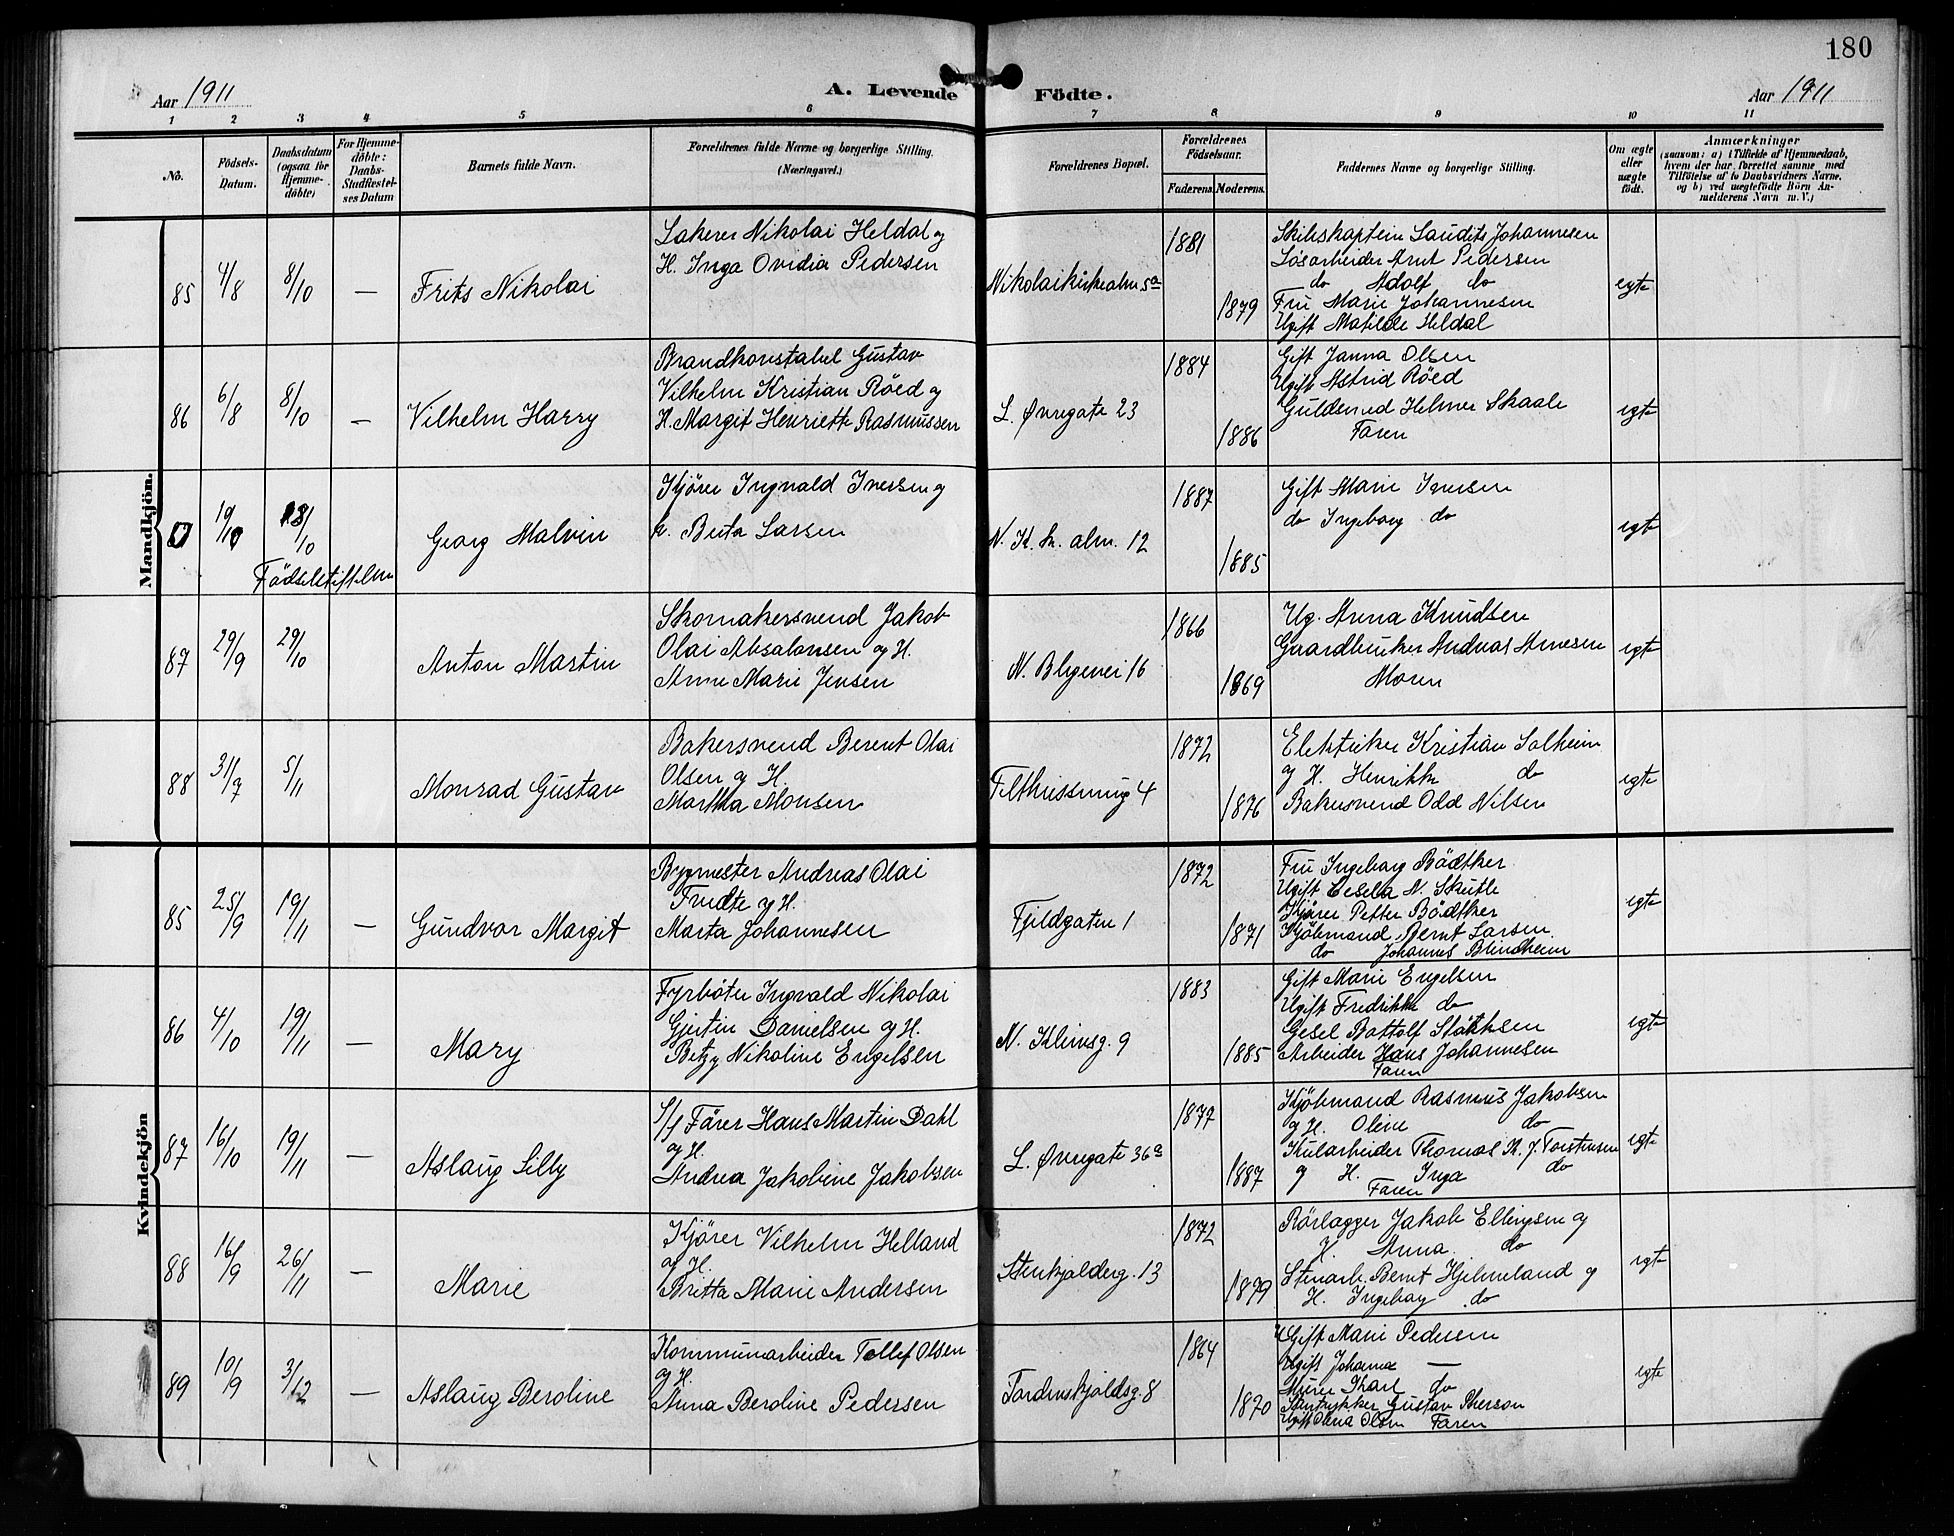 180
Aar 1911
A. Levende Födte.
Aar 1911
1 2 3 4 5 6 7 8 9 10 11
No.
Födsels-
Datum.
Daabsdatum
(ogsaa for
Hjemme-
döbte)
For Hjemme-
döbte:
Daabs-
Stadfæstel-
ses Datum
Barnets fulde Navn.
Forældrenes fulde Navne og borgerlige Stilling.
(Næringsvei.)
Forældrenes Bopæl.
Forældrenes
Födselsaar.
Faderens. Moderens.
Faddernes Navne og borgerlige Stilling.
Om ægte
eller
uægte
födt.
Anmærkninger
(saasom: a) i Tilfælde af Hjemmedaab,
hvem der har forrettet samme, med
Tilföielse af to Daabsvidners Navne,
og b) ved uægtefödte Börn An-
melderens Navn m. V.)
Mandkjön.
85 4/8 8/10 — Frits Nikolai
Lakerer Nikolai Heldal og
H. Inga Ovidia Pedersen
Nikolaikirkealm. 5a
1881
1879
Skibskaptein Laudits Johannesen
Løsarbeider Arnt Pedersen
do Adolf do
Fru Marie Johannesen
Ugift Matilde Heldal
egte
86 6/8 8/10 — Vilhelm Harry
Brandkonstabel Gustav
Vilhelm Kristian Röed og
H. Margit Henriette Rasmussen
L. Øvregate 23
1884
1886
Gift Janna Olsen
Ugift Astrid Röed
Guldsmed Helmer Skaale
Faren
egte
0 19/10 18/10
Födselsstiftelsen
Georg Malvin
Kjörer Ingvald Iversen og
h. Berta Larsen
N. K. k. alm. 12
1887
1885
Gift Marie Iversen
do Ingeborg do
egte
87 29/9 29/10 Anton Martin
Skomakersvend Jakob
Olai Absalonsen og H.
Anne Marie Jensen
N. Blegevei 16
1866
1869
Ug. Anna Knudsen
Gaardbruker Andreas Arnesen
Moren
egte
88 31/7 5/11 Monrad Gustav
Bakersvend Berent Olai
Olsen og H.
Martha Monsen
Filthussmug 4
1872
1876
Elektriker Kristian Solheim
og H. Henrikke do
Bakersvend Odd Nilsen
egte
Kvindekjön
85 25/9 19/11 — Gundvor Margit
Bygmester Andreas Olai
og H.
Marta Johannesen
Fjeldgaten 1
1872
1871
Fru Ingeborg Bödtker
Ugift Cesela N. Skutle
Kjörer Petter Bödtker
Kjöbmand Bernt Larsen
do Johannes Blindheim
egte
86 4/10 19/11 — Mary
Fyrböter Ingvald Nikolai
Gjertin Danielsen og H.
Betzy Nikoline Engelsen
N. Klevsg. 9
1883
1885
Gift Marie Engelsen
Ugift Fredrikke do
Gesel Bottolf
Arbeider Hans Johannesen
Faren
egte
87 16/10 19/11 — Aslaug Lilly
s/s Förer Hans Martin Dahl
og H.
Andrea Jakobine Jakobsen
L. Øvregate 36a
1877
1887
Kjöbmand Rasmus Jakobsen
og H. Oline do
Kularbeider Thomas K. J. Torstensen
og H. Inga do
Faren
egte
88 16/9 26/11 — Marie
Kjörer Vilhelm Helland
og H.
Britta Marie Andersen
Stenkjelderg. 13
1872
1879
Rörlægger Jakob Ellingsen og
H. Anna do
Stenarb. Bernt Hjelmeland og
H. Ingeborg do
egte
89 10/9 3/12 — Aslaug Beroline
Kommunearbeider Tollef Olsen
og H.
Anna Beroline Pedersen
Tordenskjoldsg. 8
1864
1870
Gift Marie Pedersen
Ugift Johanna —
Murer Karl do
Gustav Pherson
Ugift Olena Olsen Faren
egte